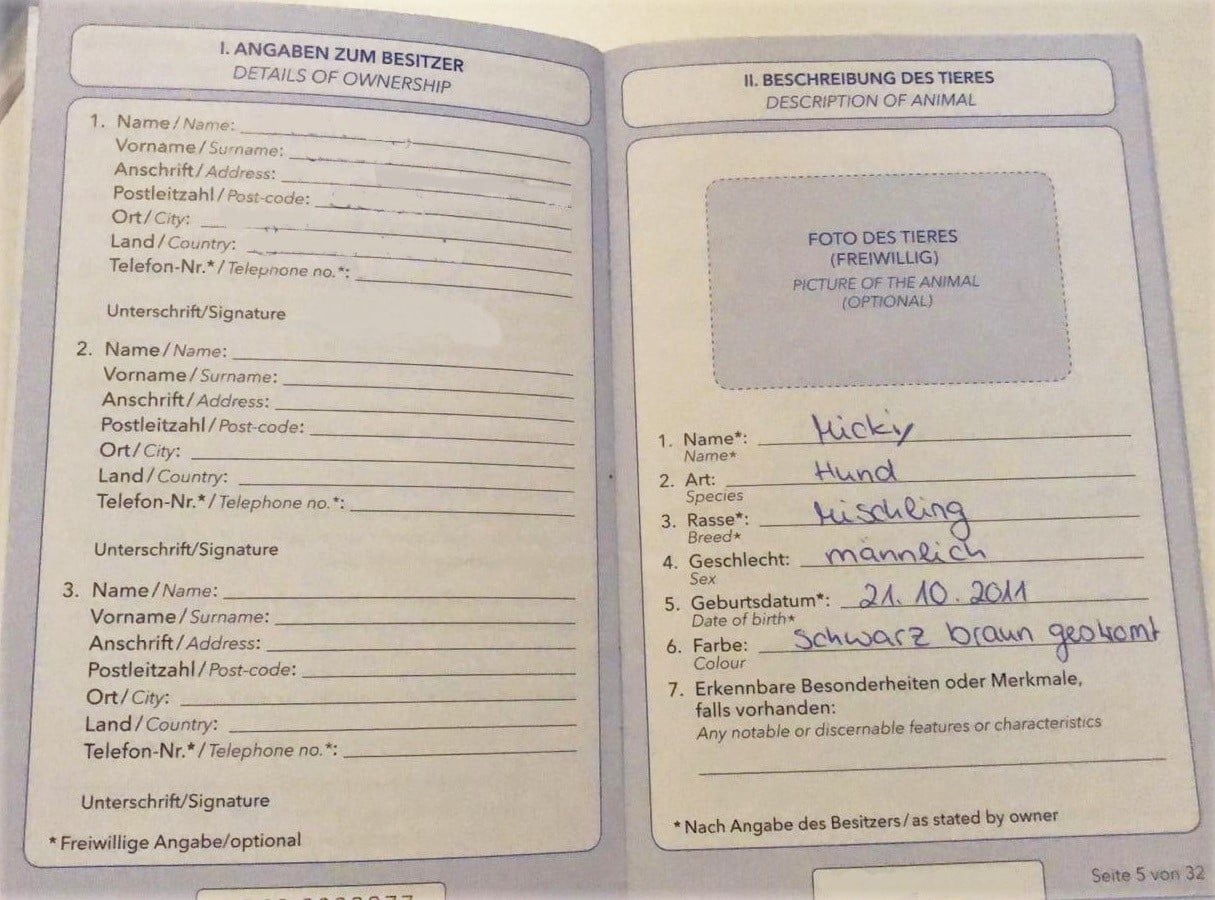 I. ANGABEN ZUM BESITZER
DETAILS OF OWNERSHIP
1. Name/Name:
Vorname/Surname:
Anschrift/Address:
Postleitzahl/Post-code:
Ort/City:
Land/Country:
Telefon-Nr.*/Telephone no.*:
Unterschrift/Signature
2. Name/Name:
Vorname/Surname:
Anschrift/Address:
Postleitzahl/Post-code:
Ort/City:
Land/Country:
Telefon-Nr.*/Telephone no.*:
Unterschrift/Signature
3. Name/Name:
Vorname/Surname:
Anschrift/Address:
Postleitzahl/Post-code:
Ort/City:
Land/Country:
Telefon-Nr.*/Telephone no.*:
Unterschrift/Signature
*Freiwillige Angabe/optional
II. BESCHREIBUNG DES TIERES
DESCRIPTION OF ANIMAL
FOTO DES TIERES
(FREIWILLIG)
PICTURE OF THE ANIMAL
(OPTIONAL)
1. Name*: Micky
Name*
2. Art: Hund
Species
3. Rasse*: Mischling
Breed*
4. Geschlecht: männlich
Sex
5. Geburtsdatum*: 21.10.2011
Date of birth*
6. Farbe: schwarz braun gestromt
Colour
7. Erkennbare Besonderheiten oder Merkmale,
falls vorhanden:
Any notable or discernable features or characteristics
*Nach Angabe des Besitzers/as stated by owner
Seite 5 von 32